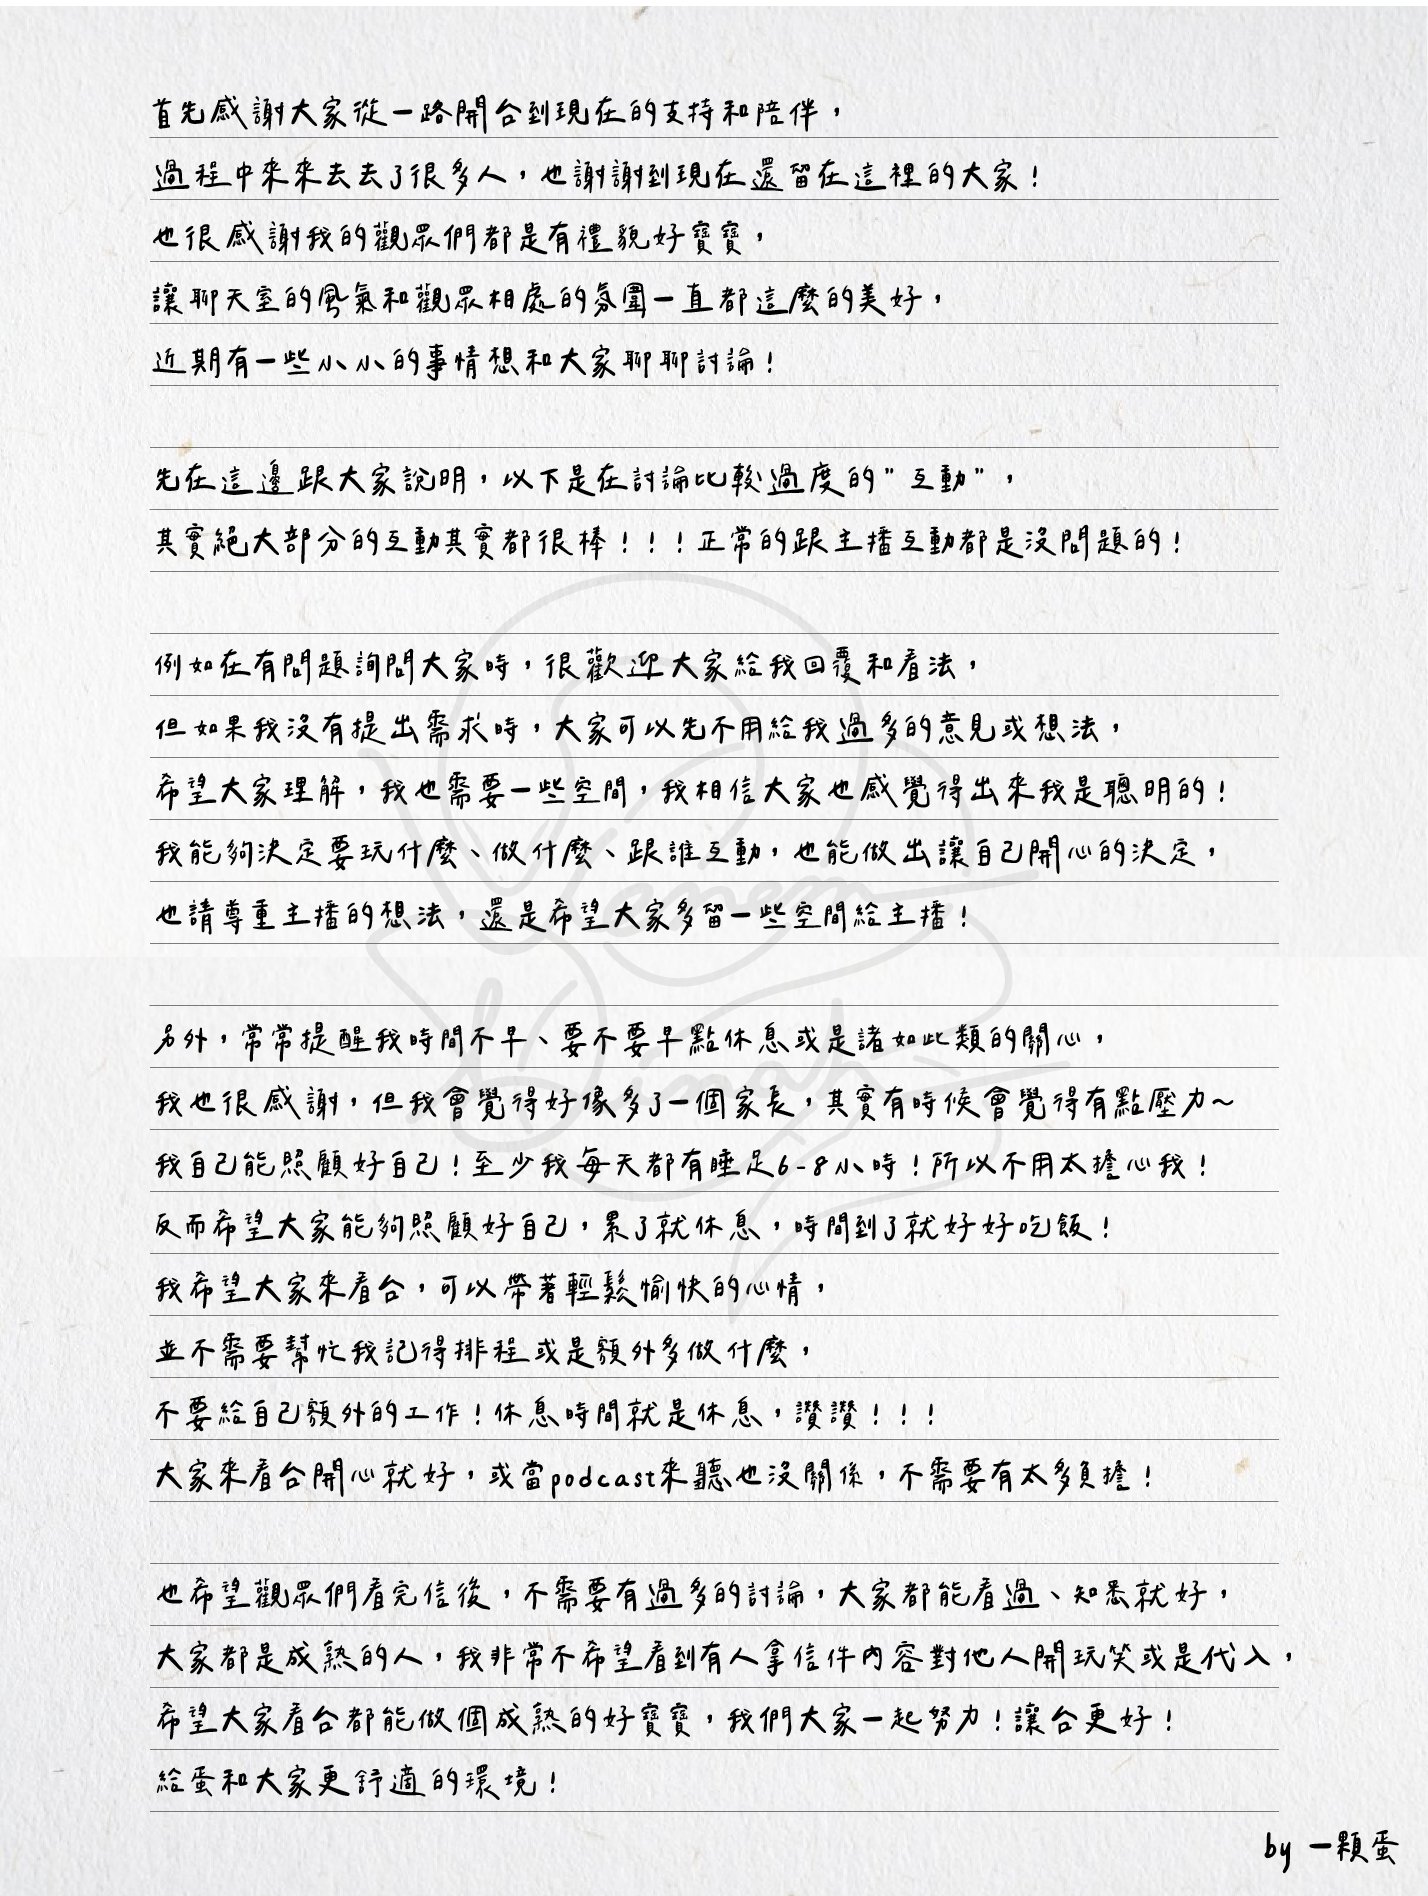 首先感謝大家從一路開台到現在的支持和陪伴，
過程中來來去去了很多人，也謝謝到現在還留在這裡的大家！
也很感謝我的觀眾們都是有禮貌好寶寶，
讓聊天室的風氣和觀眾相處的氛圍一直都這麼的美好，
近期有一些小小的事情想和大家聊聊討論！
先在這邊跟大家說明，以下是在討論比較過度的"互動"，
其實絕大部分的互動其實都很棒！！！正常的跟主播互動都是沒問題的！
例如在有問題詢問大家時，很歡迎大家給我回覆和看法，
但如果我沒有提出需求時，大家可以先不用給我過多的意見或想法，
希望大家理解，我也需要一些空間，我相信大家也感覺得出來我是聰明的！
我能夠決定要玩什麼、做什麼、跟誰互動，也能做出讓自己開心的決定，
也請尊重主播的想法，還是希望大家多留一些空間給主播！
另外，常常提醒我時間不早、要不要早點休息或是諸如此類的關心，
我也很感謝，但我會覺得好像多了一個家長，其實有時候會覺得有點壓力～
我自己能照顧好自己！至少我每天都有睡足6-8小時！所以不用太擔心我！
反而希望大家能夠照顧好自己，累了就休息，時間到了就好好吃飯！
我希望大家來看台，可以帶著輕鬆愉快的心情，
並不需要幫忙我記得排程或是額外多做什麼，
不要給自己額外的工作！休息時間就是休息，讚讚！！！
大家來看台開心就好，或當podcast來聽也沒關係，不需要有太多負擔！
也希望觀眾們看完信後，不需要有過多的討論，大家都能看過、知悉就好，
大家都是成熟的人，我非常不希望看到有人拿信件內容對他人開玩笑或是代入，
希望大家看台都能做個成熟的好寶寶，我們大家一起努力！讓台更好！
給蛋和大家更舒適的環境！
by 一顆蛋